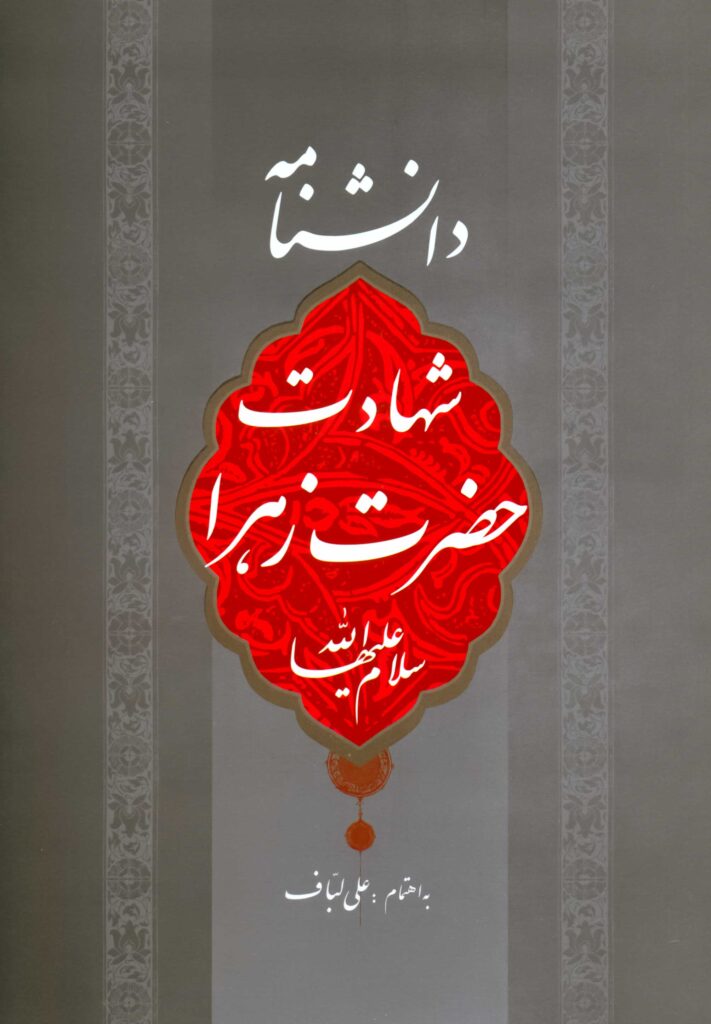 دانشنامه
شهادت
حضرت زهرا
سلام الله علیها
به اهتمام : علی لبّاف